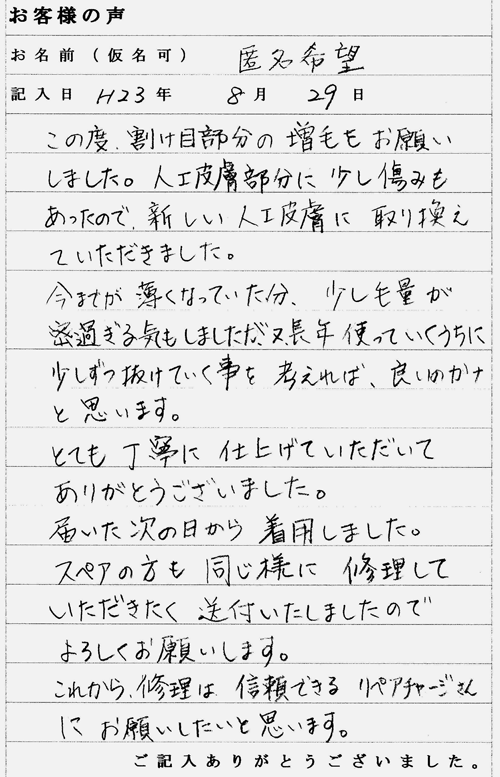 お客様の声
お名前（仮名可） 匿名希望
記入日 H23年 8月 29日
この度、割け目部分の増毛をお願い
しました。人工皮膚部分に少し傷みも
あったので、新しい人工皮膚に取り換え
ていただきました。
今までが薄くなっていた分、少し毛量が
密過ぎる気もしましたが、又、長年使っていくうちに
少しずつ抜けていく事を考えれば、良いのかナ
と思います。
とても丁寧に仕上げていただいて
ありがとうございました。
届いた次の日から着用しました。
スペアの方も同じ様に修理して
いただきたく送付いたしましたので
よろしくお願いします。
これから、修理は信頼できるリペアチャージさん
にお願いしたいと思います。
ご記入ありがとうございました。